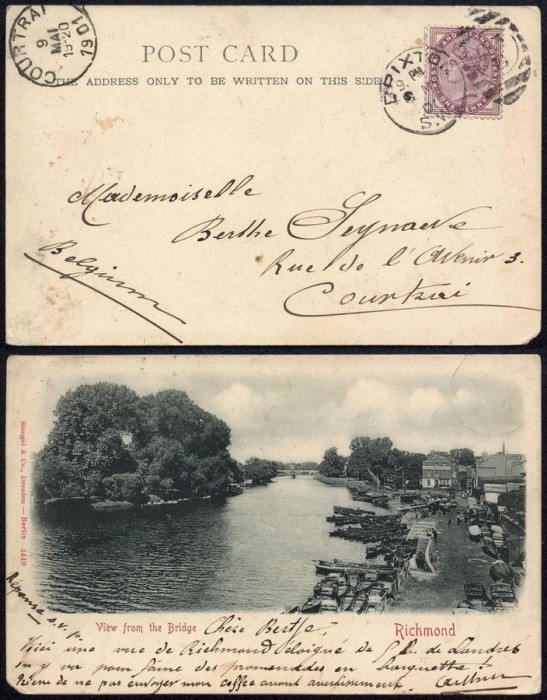 COURTRAI
9
MAI
15-20
1901
POST CARD
THE ADDRESS ONLY TO BE WRITTEN ON THIS SIDE
BRIXTON
S.W.
Mademoiselle
Berthe Seynaeve
Rue de l'Avenir 3.
Courtrai
Belgium
Stengel & Co., Dresden — Berlin 4449
Réponse s.v.p.
View from the Bridge
Chère Berthe,
Richmond
Voici une vue de Richmond éloigné de de Londres
on y va pour faire des promenades en barquette!
de ne pas envoyer mon coffre avant avertissement. Arthur